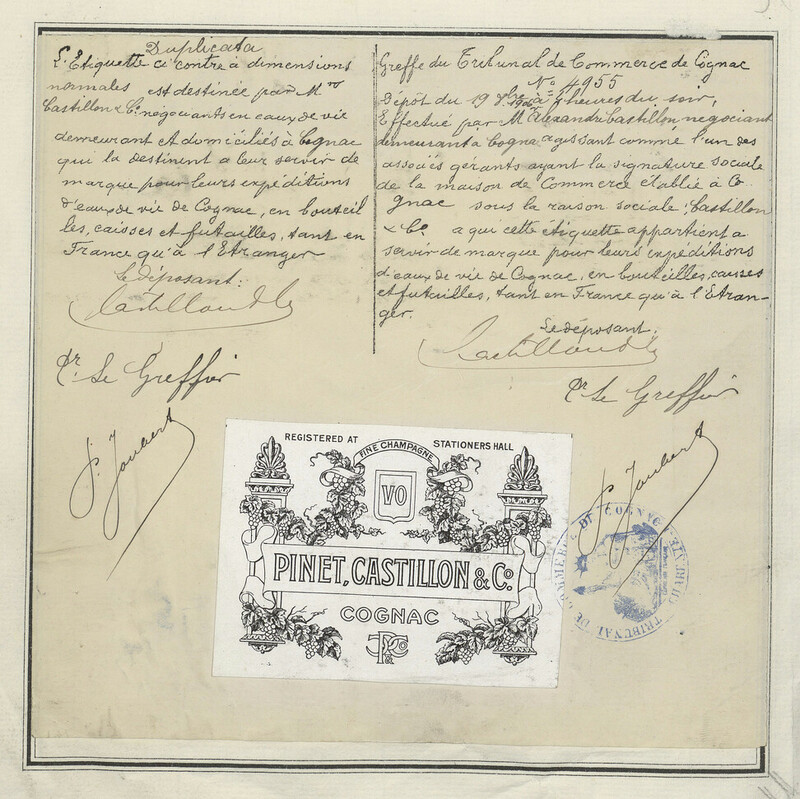 Duplicata
L'Etiquette ci contre à dimensions
normales est destinée par Mrs
Castillon & Cie négociants en eaux de vie
demeurant et domiciliés à Cognac
qui la destinent a leur servir de
marque pour leurs expéditions
d'eaux de vie de Cognac, en bouteil
les, caisses et futailles, tant en
France qu'à l'Etranger
Le déposant:
Castillon & Cie
Pr Le Greffier
P. Joubert
Greffe du Tribunal de Commerce de Cognac
No 4955
Dépôt du 19 heures du soir,
Effectué par M Alexandre Castillon negociant
demeurant a Cognac agissant comme l'un des
associés gérants ayant la signature sociale
de la maison de Commerce établie à Co
gnac sous la raison sociale; Castillon
& Co a qui cette étiquette appartient a
servir de marque pour leurs expéditions
d'eaux de vie de Cognac, en bouteilles, caisses
et futailles, tant en France qu'à l'Etran-
ger.
Le déposant,
Castillon & Cie
Pr Le Greffier
P. Joubert
REGISTERED AT STATIONERS HALL
FINE CHAMPAGNE
VO
PINET, CASTILLON & Co.
COGNAC
P C & Co
TRIBUNAL DE COMMERCE DE COGNAC